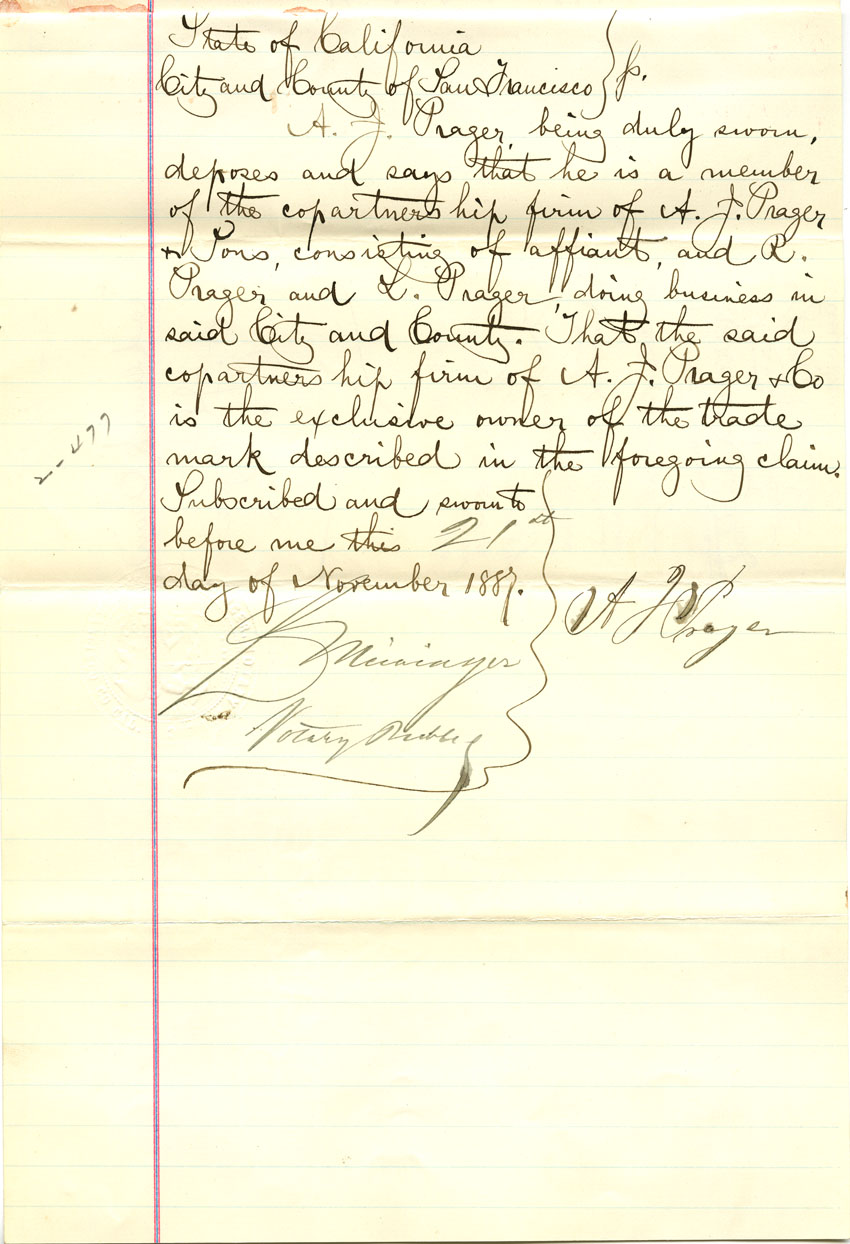 State of California
City and County of San Francisco } ss.
A. J. Prager, being duly sworn,
deposes and says that he is a member
of the copartnership firm of A. J. Prager
& Sons, consisting of affiant, and R.
Prager and L. Prager, doing business in
said City and County. That the said
copartnership firm of A. J. Prager & Co
is the exclusive owner of the trade
mark described in the foregoing claim.
2-477
Subscribed and sworn to
before me this 21st
day of November 1887.
A J Prager
Notary Public